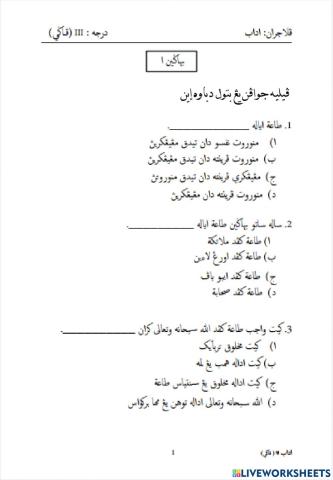 ڤلاجران: اداب
درجه : III (ڤاݢي)
بهاݢين ١
ڤيليه جواڤن يڠ بتول دباوه اين
1. طاعة اياله ____________.
ا) منوروت نفسو دان تيدق مڠيڠكرين
ب) منوروت ڤرينته دان تيدق مڠيڠكرين
ج) مڠيڠكري ڤرينته دان تيدق منوروتن
د) منوروت ڤرينته دان مڠيڠكرين
2. ساله ساتو بهاݢين طاعة اياله ____________.
ا) طاعة كڤد ملائكة
ب) طاعة كڤد اورڠ لاءين
ج) طاعة كڤد ايبو باڤ
د) طاعة كڤد صحابة
3. كيت واجب طاعة كڤد الله سبحانه وتعالى كران ____________.
ا) كيت مخلوق تربايك
ب) كيت اداله همب يڠ لمه
ج) كيت اداله مخلوق يڠ سنتياس طاعة
د) الله سبحانه وتعالى اداله توهن يڠ مها بركواس
1
LIVEWORKSHEETS